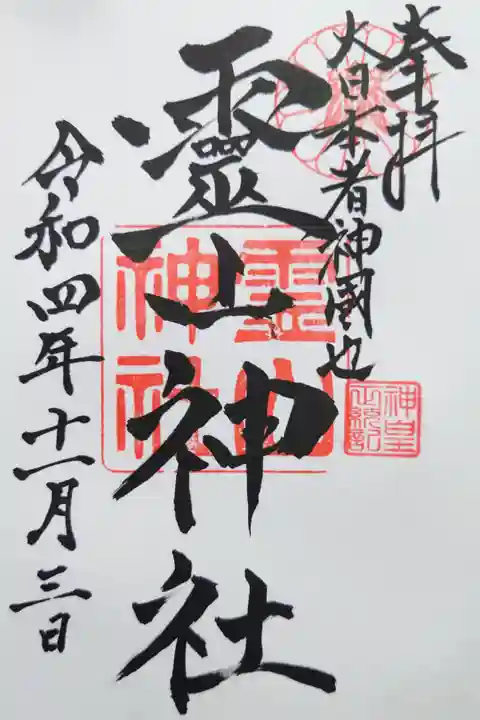 奉拝
大日本者神國也
神皇
正統記
靈山神社
霊山
神社
令和四年十一月三日